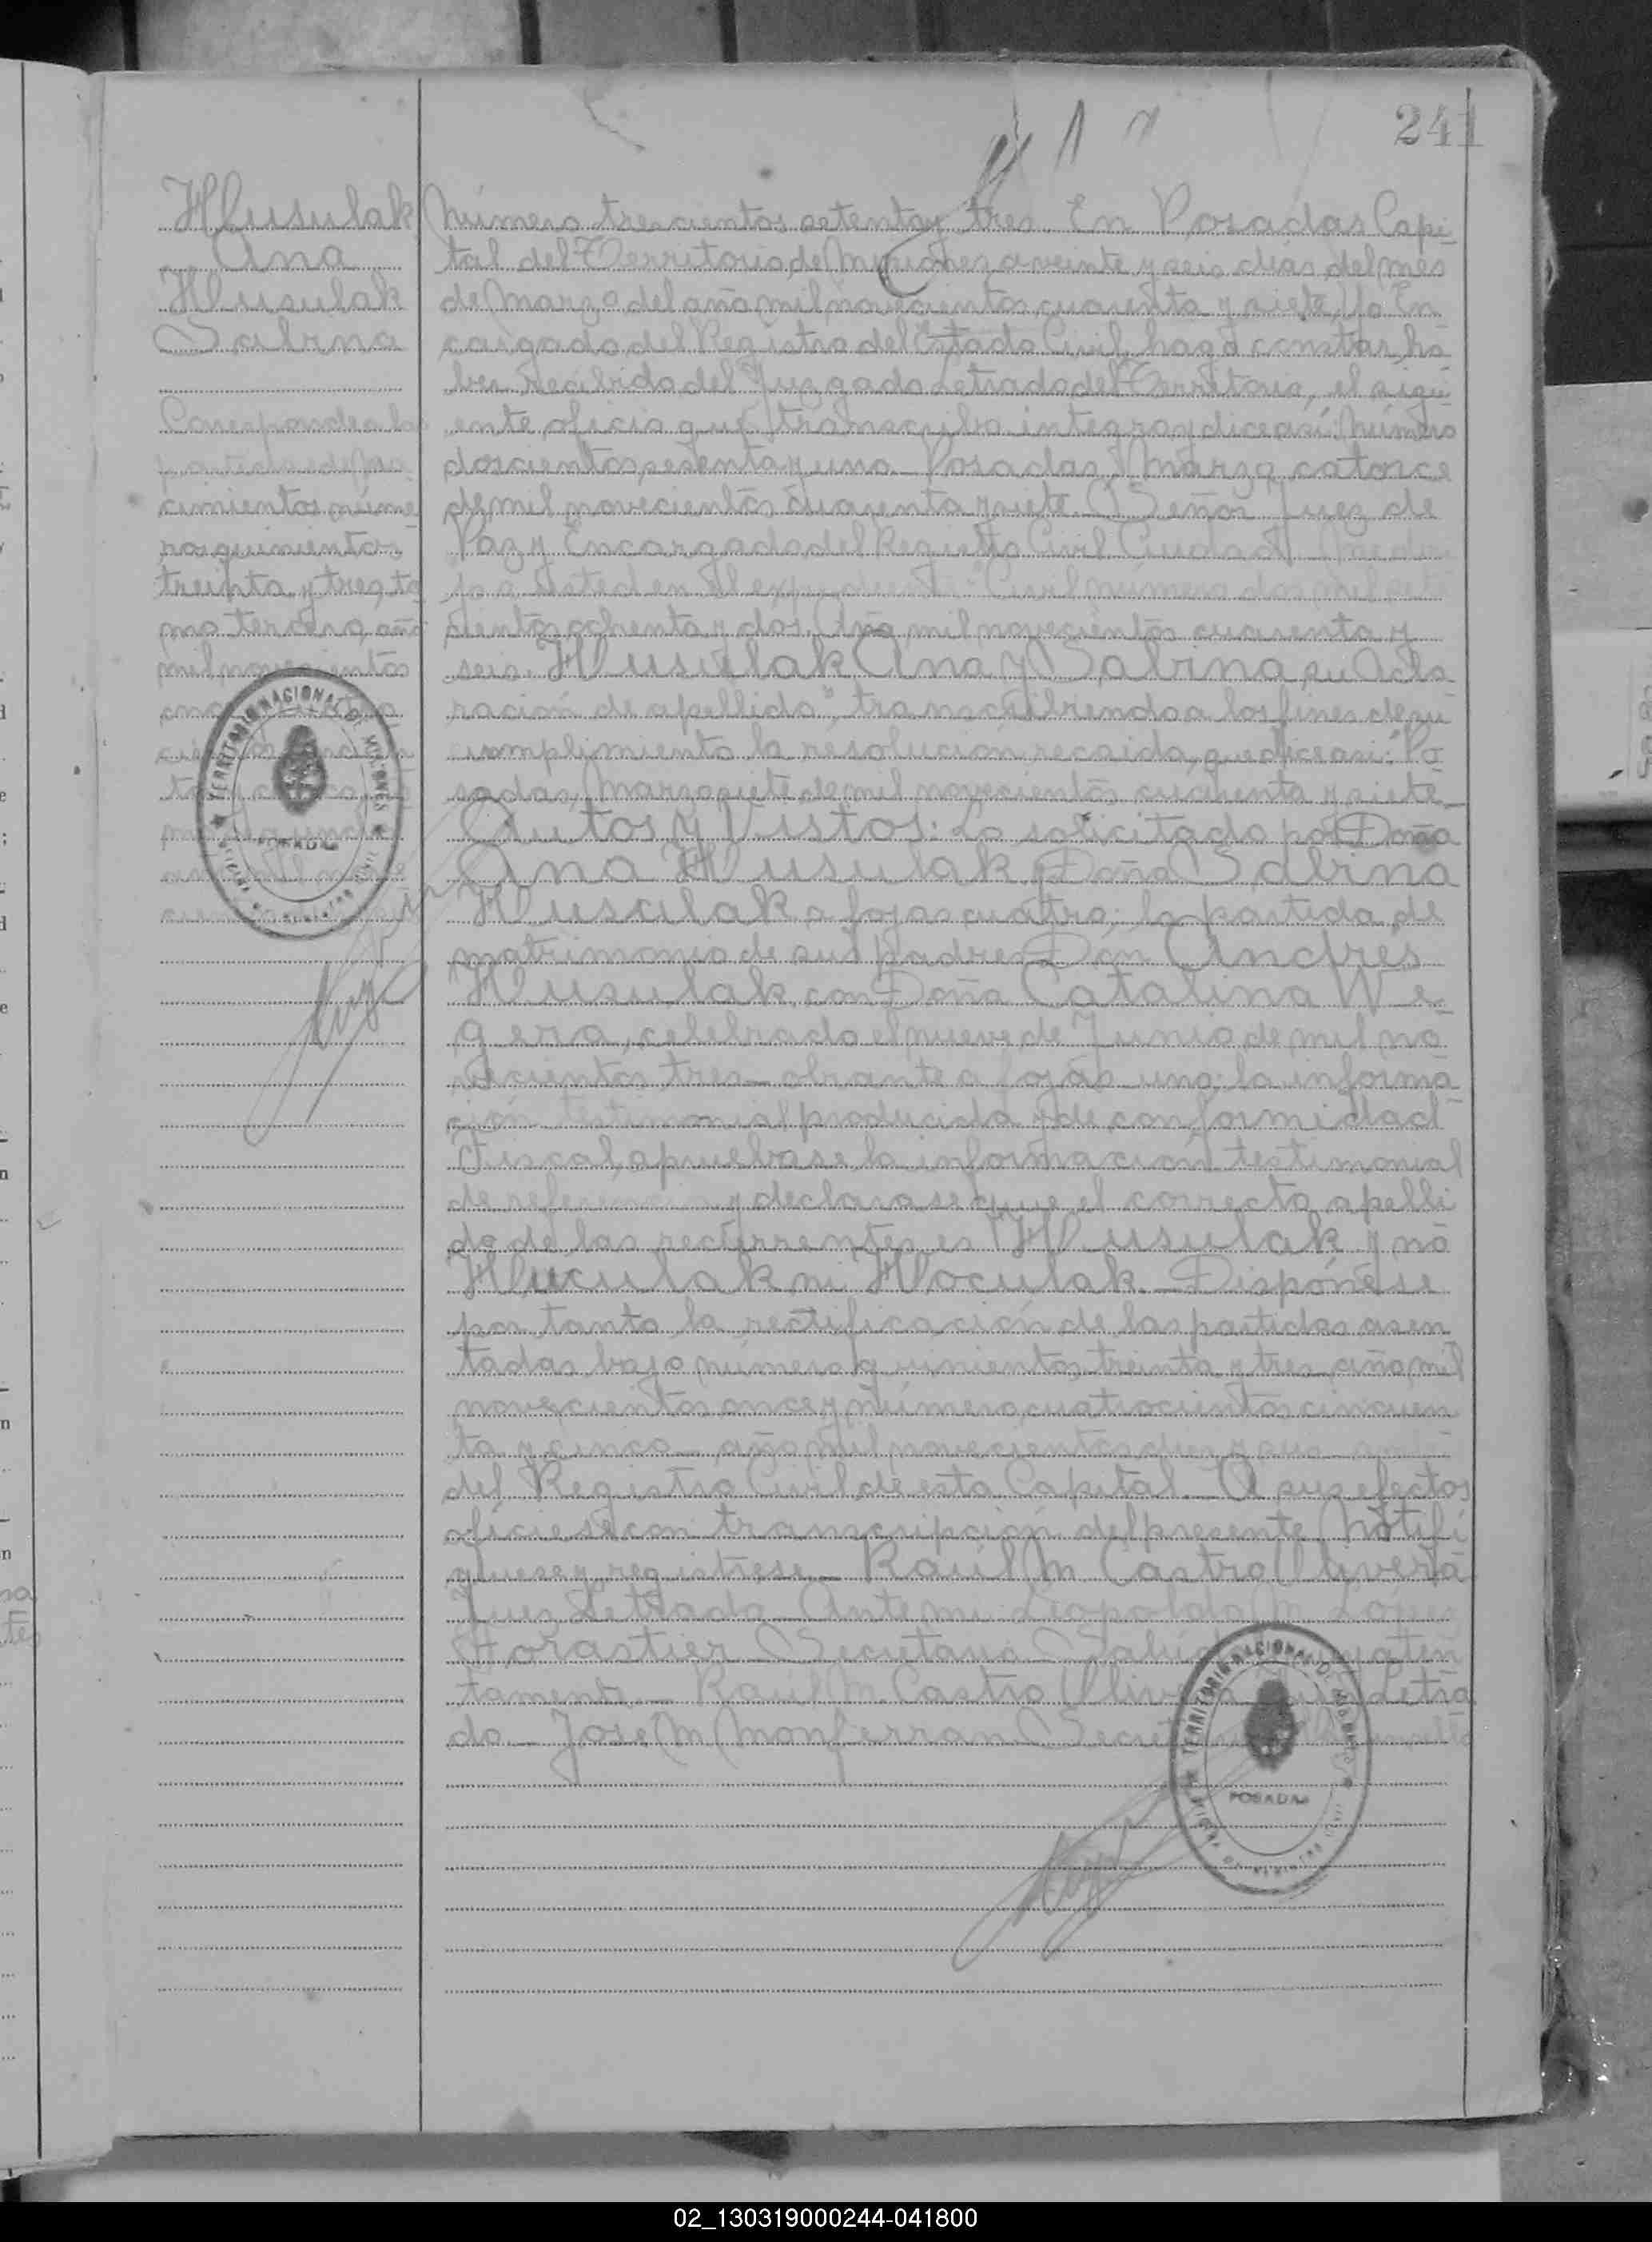 241
Hlusulak
Ana
Hlusulak
Sabina
Corresponde a las
partidas de na
cimientos núme
ro quinientos
treinta y tres, to
mo tercero, año
mil novecientos
Número trescientos setenta y tres. En Posadas Capi
tal del Territorio de Misiones, a veinte y seis días del mes
de Marzo del año mil novecientos cuarenta y siete, Yo En
cargado del Registro del Estado Civil, hago constar, ha
ber recibido del Juzgado Letrado del Territorio, el sigui
ente oficio que transcribo integro y dice así: Número
doscientos sesenta y uno. Posadas, Marzo catorce
de mil novecientos cuarenta y siete. Señor Juez de
Paz y Encargado del Registro Civil Ciudad
jo a usted en el expediente: "Civil número dos mil sete
cientos ochenta y dos. Año mil novecientos cuarenta y
seis. Hlusulak Ana y Sabina, su Acla
ración de apellido", transcribiendo a los fines de su
cumplimiento la resolución recaida, que dice así: "Po
sadas, Marzo siete de mil novecientos cuarenta y siete.
Autos y Vistos: Lo solicitado por Doña
Ana Hlusulak y Doña Sabina
Hlusulak a fojas cuatro; la partida de
matrimonio de sus padres Don Andrés
Hlusulak, con Doña Catalina We
gera, celebrado el nueve de Junio de mil no
vecientos tres, obrante a fojas una; la informa
ción testimonial producida y de conformidad
Fiscal, apruebase la información testimonial
de referencia y declarase que el correcto apelli
do de las recurrentes es "Hlusulak y no
Hluculak ni Hloculak. Dispónese
por tanto la rectificación de las partidas asen
tadas bajo número quinientos treinta y tres año mil
novecientos once y número cuatrocientos cincuen
ta y cinco año mil novecientos diez y seis
del Registro Civil de esta Capital. A sus efectos
ofíciese con transcripción del presente. Notifí
quese y registrese. Raúl M. Castro Olivera
Juez Letrado. Ante mi Leopoldo M. Lopez
Forastier Secretario. Saludo muy aten
tamente. Raul M Castro Olivera Juez Letra
do. José M Monferran Secretario
TERRITORIO NACIONAL DE MISIONES
POSADAS
TERRITORIO NACIONAL DE MISIONES
POSADAS
02_130319000244-041800